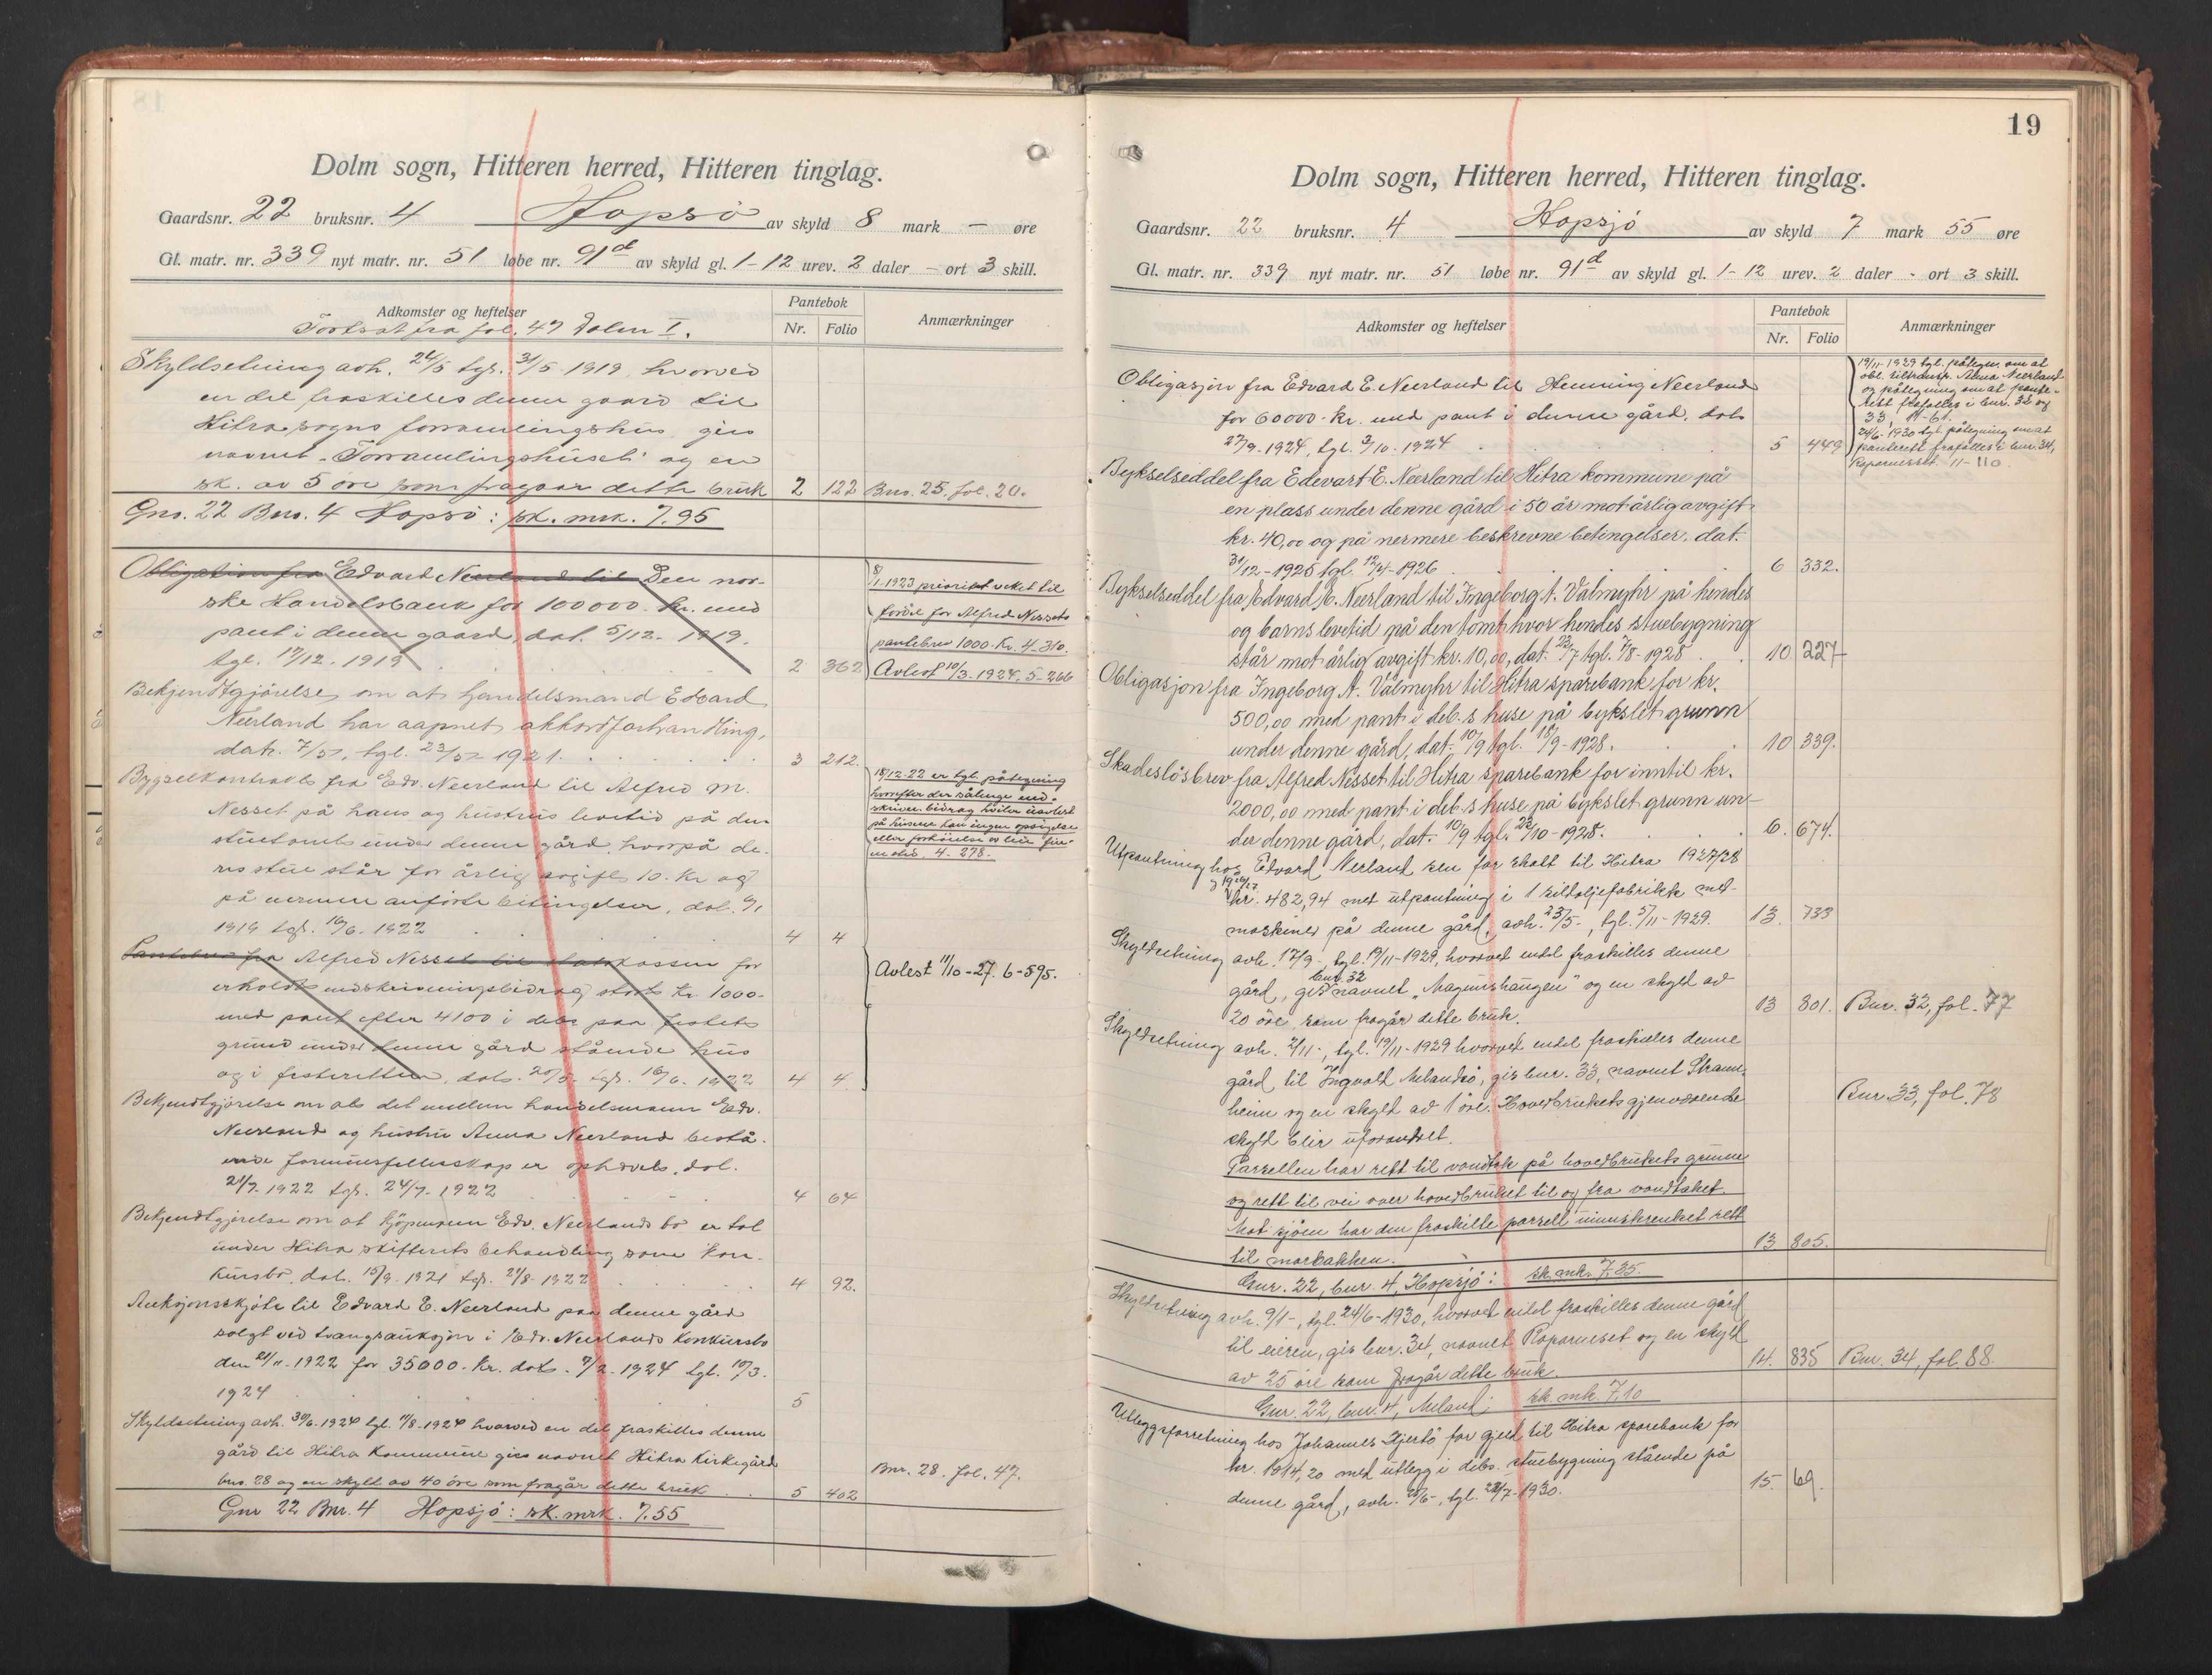 Dolm sogn, Hitteren herred, Hitteren tinglag.
Gaardsnr. 22 bruksnr. 4 Hopsö av skyld 8 mark — øre
Gl. matr. nr. 339 nyt matr. nr. 51 løbe nr. 91d av skyld gl. 1-12 urev. 2 daler — ort 3 skill.
Adkomster og heftelser
Pantebok
Nr. Folio
Anmærkninger
Fortsat fra fol. 47 Dolm I.
Skyldsetning avh. 24/5 tgl. 31/5 1919, hvorved
en del fraskilles denne gaard til
Hitra sogns forsamlingshus, gis
navnet "Forsamlingshuset" og en
sk. av 5 öre som fragaar dette bruk 2 122 Bno. 25. fol. 20.
Gno. 22 Bno. 4 Hopsö: sk. mrk. 7.95
Obligation fra Edvard Neerland til Den nor-
ske Handelsbank for 100000. kr. med
pant i denne gaard, dat. 5/12. 1919.
tgl. 17/12. 1919 2 362
8/1-1923 prioritet veket til
fordel for Alfred Nessets
pantebrev 1000 kr. 4-310.
Avlest 10/3. 1924. 5-266
Bekjendtgjörelse om at handelsmand Edvard
Neerland har aapnet akkordforhandling,
dat. 7/5, tgl. 23/5 1921. 3 212.
Bygselkontrakt fra Edv. Neerland til Alfred M.
Nesset på hans og hustrus levetid på den
stuetomt under denne gård, hvorpå de-
res stue står for årlig avgift 10. kr og
på nermere anförte betingelser, dat.
1919 tgl. 16/6. 1922 4 4
18/12-22 er tgl. påtegning
Pantebrev fra Alfred Nesset til statskassen for
erholdt nedskrivningsbidrag stort kr. 1000-
med pant efter 4100 i debs paa festet
grund under denne gård stående hus
og i festeretten, dat. 20/5- tgl. 16/6. 1922 4 4.
Avlest 11/10-27. 6-595.
Bekjendtgjörelse om at det mellem handelsmann Edv.
Neerland og hustru Anna Neerland bestå-
ende formuesfellesskap er ophævet, dat.
21/7. 1922 tgl. 24/7. 1922 4 64
Bekjendtgjörelse om at kjöpmann Edv. Neerlands bo er tat
under Hitra skifteretts behandling som kon-
kursbo, dat. 15/9. 1921 tgl. 21/8. 1922 4 92.
Auksjonsskjöte til Edvard E. Neerland paa denne gård
solgt ved tvangsauksjon i Edv. Neerlands konkursbo
den 21/11. 1922 for 35000. kr. dat. 7/2. 1924 tgl. 10/3.
1924 5
Skyldsetning avh. 30/6. 1924 tgl. 7/8. 1924 hvorved en del fraskilles denne
gård til Hitra kommune gies navnet Hitra kirkegård
bno. 28 og en skyld av 40 öre som fragår dette bruk 5 402 Bnr. 28. fol. 47.
Gnr 22 Bnr. 4 Hopsjö: sk. mrk. 7.55
19
Dolm sogn, Hitteren herred, Hitteren tinglag.
Gaardsnr. 22 bruksnr. 4 Hopsjö av skyld 7 mark 55 øre
Gl. matr. nr. 339 nyt matr. nr. 51 løbe nr. 91d av skyld gl. 1-12 urev. 2 daler - ort 3 skill.
Adkomster og heftelser
Pantebok
Nr. Folio
Anmærkninger
Obligasjon fra Edvard E. Neerland til Henning Neerland
for 60000. kr. med pant i denne gård, dat.
27/9. 1924, tgl. 3/10. 1924 5 449
19/11-1929 tgl. påtegn. om at
obl. er transp. Anna Neerland
og påtegning om at pante-
rett frafalles i bnr. 32 og
33. 11-61.
24/6-1930 tgl. påtegning om at
panterett frafalles i bnr. 34,
Roparneset. 11-110
Bykselseddel fra Edevart E. Neerland til Hitra kommune på
en plass under denne gård i 50 år mot årlig avgift
kr. 40,00 og på nermere beskrevne betingelser, dat.
31/12-1925 tgl. 12/4-1926 6 332.
Bykselseddel fra Edvard E. Neerland til Ingeborg A. Valmyhr på hendes
og barns levetid på den tomt hvor hendes stuebygning
står mot årlig avgift kr. 10,00, dat. 23/7 tgl. 7/8-1928 10 227
Obligasjon fra Ingeborg A. Valmyhr til Hitra sparebank for kr.
500,00 med pant i deb.s huse på bykslet grunn
under denne gård, dat. 10/9 tgl. 18/9-1928. 10 339.
Skadeslösbrev fra Alfred Nesset til Hitra sparebank for inntil kr.
2000,00 med pant i deb.s huse på bykslet grunn un-
der denne gård, dat. 10/9 tgl. 22/10-1928. 6. 674.
Utpantning hos Edvard Neerland sen for skatt til Hitra 1927/28
og 1926/27
kr. 482,94 med utpantning i 1 sildoljefabrikk med
maskiner på denne gård, avh. 23/5-, tgl. 5/11-1929. 13. 733
Skyldsetning avh. 17/9-, tgl. 19/11-1929, hvorved endel fraskilles denne
gård, gis bnr. 32 navnet "Magnushaugen" og en skyld av
20 öre, som fragår dette bruk. 13 801. Bnr. 32, fol. 77
Skyldsetning avh. 2/11-, tgl. 19/11-1929 hvorved endel fraskilles denne
gård, til Ingvald Melandsö, gis bnr. 33, navnet Strand-
heim og en skyld av 1 öre. Hovedbrukets gjenværende
skyld blir uforandret. Bnr. 33, fol. 78
Parsellen har rett til vandtak på hovedbrukets grunn
og rett til vei over hovedbruket til og fra vandtaket.
Mot sjöen har den fraskilte parsell uinnskrenket rett
til marbakken. 13 805.
Gnr. 22, bnr. 4, Hopsjö: sk. mk. 7.35.
Skyldsetning avh. 9/1-, tgl. 24/6-1930, hvorved endel fraskilles denne gård
til eieren, gis bnr. 34, navnet Roparneset og en skyld
av 25 öre som fragår dette bruk. 14. 835 Bnr. 34, fol. 88.
Gnr. 22, bnr. 4, Meland: sk. mk. 7.10
Utleggsforretning hos Johannes Hjertö for gjeld til Hitra sparebank for
kr. 1014,20 med utlegg i debs. stuebygning stående på
denne gård, avh. /6-, tgl. 28/7-1930. 15. 69.